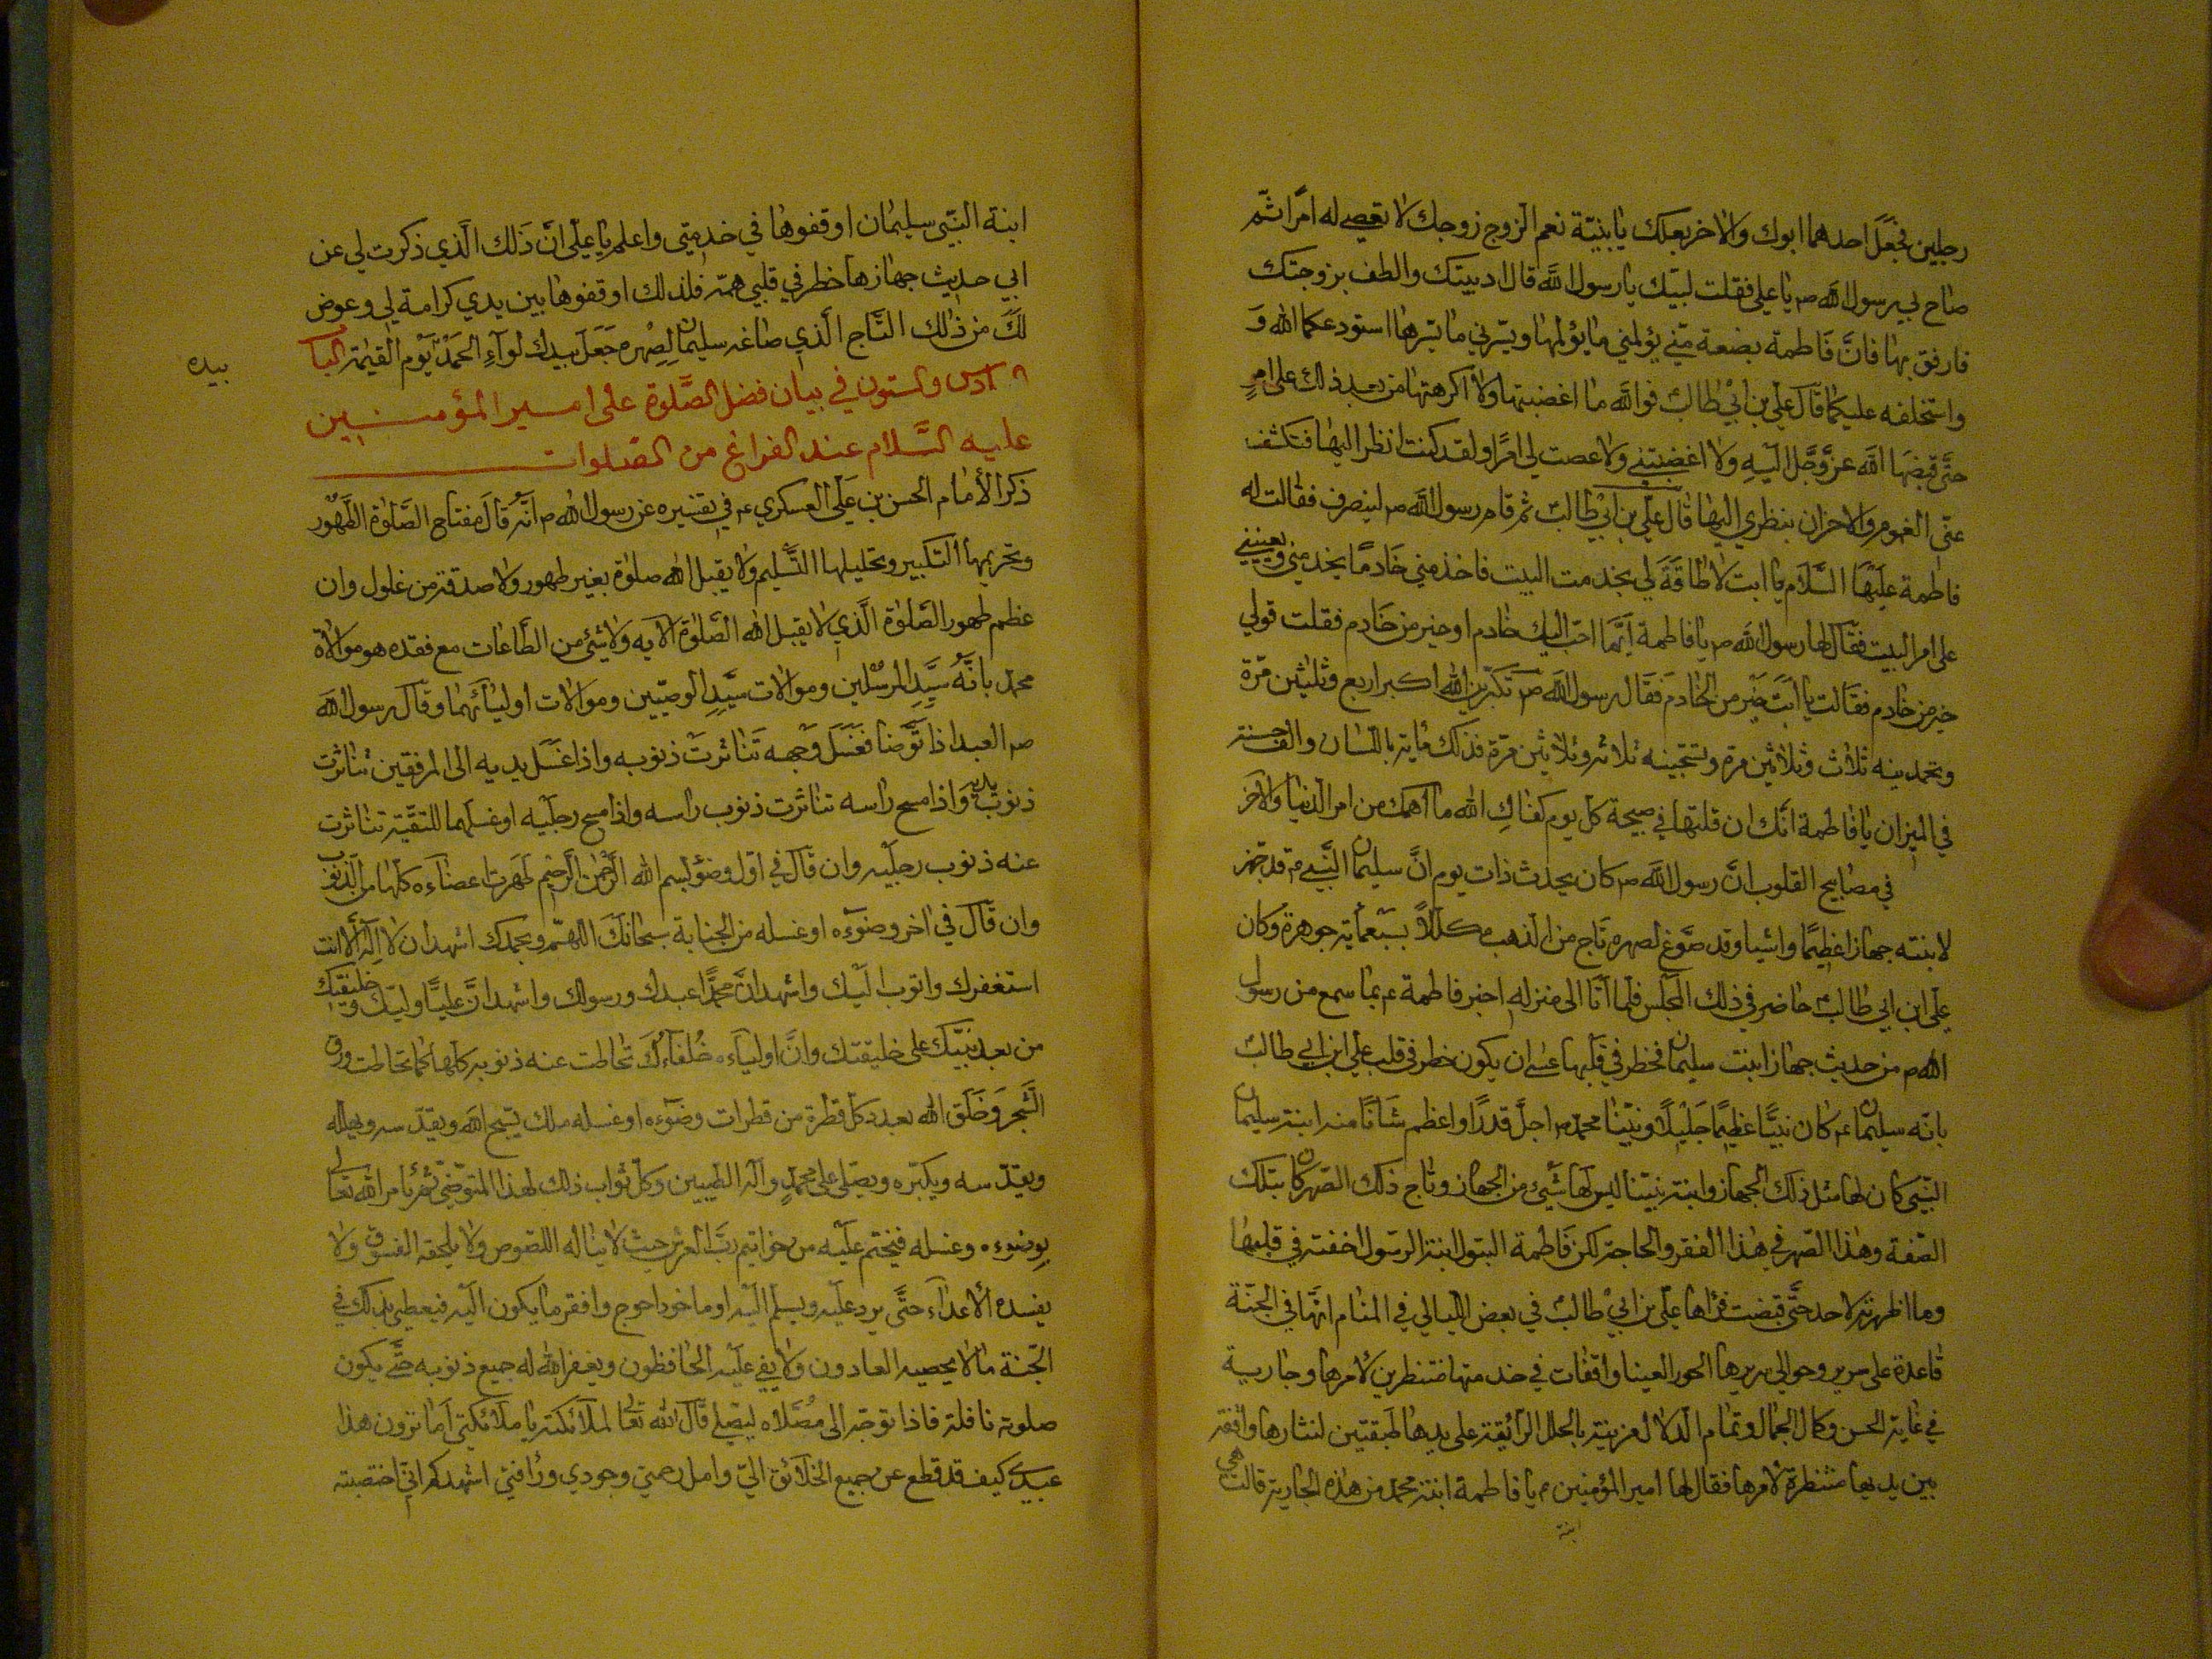 رجلين فجعل احدهما ابوك والاخر بعلك يا بنيّة نعم الزوج زوجك لا تعصي له امرا ثمّ
صاح بي رسول الله ص يا علي فقلت لبيّك يا رسول الله قال ادخل بيتك والطف بزوجتك
فارفق بها فانّ فاطمة بضعة منّي يؤلمني ما يؤلمها ويسّرني ما يسّرها استودعكما الله وَ
واستخلفه عليكما قال علي بن ابي طالب فوالله ما اغضبتها ولا اكرهتها من بعد ذلك على امرٍ
حتّى قبضها الله عزّ وجلّ اليه ولا اغضبتني ولا عصت لي امرًا ولقد كنت انظر اليها فتكشف
عنّي الغموم والاحزان بنظري اليها قال علي بن ابي طالب ثم قام رسول الله ص لينصرف فقالت له
فاطمة عليها السّلام يا ابت لا طاقة لي بخدمت البيت فاخذمني خادمًا يخدمني ويعينني
على امر البيت فقال لها رسول الله ص يا فاطمة ايّما احبّ اليك خادم او خير من خادم فقلت قولي
خير من خادم فقالت يا ابت خير من الخادم فقال رسول الله ص تكبّرين الله اكبر اربع وثلثين مرّة
وتحمدينه ثلاث وثلاثين مرة وتسبّحينه ثلاثه وثلاثين مرّة فذلك مايه باللسان والف حسنة
في الميزان يا فاطمة انّك ان قلتها في صبيحة كل يوم كفاكِ الله ما اهمك من امر الدنيا والاخر
في مصابيح القلوب انّ رسول الله ص كان يحدث ذات يوم انّ سليمان النّبي ع قد جهّز
لابنته جهازا عظيمًا واشيا وقد صوّغ لصهره تاج من الذهب مكللاً بسبعمايه جوهرة وكان
علي ابن ابي طالب حاضر في ذلك المجلس فلما اتا الى منزله اخبر فاطمة ع بما سمع من رسول
الله ص من حديث جهاز ابنت سليمان فخطر في قلبها عسٰى ان يكون خطر في قلب علي ابن ابي طالب
بانّه سليمان ع كان نبيًّا عظيمًا جليلاً ونبيّنا محمد ص اجلّ قدرًا واعظم شانًا منه ابنة سليمان
النّبي كان لها مثل ذلك الجهاز وابنة نبيّنا ليس لها شيء من الجهاز وتاج ذلك الصّهر كان بتلك
الصّفة وهذا الصّهر في هذا الفقر والحاجة لكن فاطمة البتول ابنة الرسول اخفته في قلبها
وما اظهرته لاحد حتّى قبضت فرٰاها علي بن ابي طالب في بعض الليالي في المنام انّها في الجنّة
قاعدة على سرير وحوالي سريرها الحور العينا واقفات في خدمتها منتظرين لامرها وجارية
في غاية الحسن وكمال الجمال وتمام الدّلال مزينة بالحلل الرّائقة على يديها طبقتين لنثارها واقفة
بين يديها منتظرة لامرها فقال لها امير المؤمنين ع يا فاطمة ابنة محمد من هذه الجارية قالت هي
ابنة
ابنة النّبي سليمان اوقفوها في خدمتي واعلم يا علي انَّ ذلك الّذي ذكرت لي عن
ابي حديث جهازها خطر في قلبي همّه فلذلك اوقفوها بين يدي كرامة لي وعوض
لكَ من ذلك التّاج الّذي صاغه سليمان لصهره جَعَلَ بيدك لوآءِ الحمد يَوْم القيمة الباب
السادس والستون في بيان فضل الصَّلوة على امير المؤمنين
عليه السّلام عند الفراغ من الصلوات
ذكر الأمام الحسن بن علي العسكري ع في تفسيره عن رسول الله ص انّه قال مفتاح الصّلوة الطهور
وتحريمها التكبير وتحليلها التّسليم ولا يقبل الله صلوة بغير طهور ولا صدقة من غلول وان
عظم طهور الصّلوة الّذي لا يقبل الله الصّلوة الّا به ولا شيئ من الطّاعات مع فقده هو موالاة
محمد بانّه سيّد المرسلين وموالات سيّد الوصيّين وموالات اوليائهما وقال رسول الله
ص العبد اذا توّضا فغسل وجهه تناثرت ذنوبه واذا غسل يديه الى المرفقين تناثرت
ذنوب يديه واذا مسح راسه تناثرت ذنوب راسه واذا مسح رجليه او غسلهما للتقيّة تناثرت
عنه ذنوب رجليه وان قال في اول وضوئ بسم الله الرّحمن الرّحيم طهرت اعضاءه كلها من الذنوب
وان قال في اخر وضوءه او غسله من الجنابة سبحانك اللهمّ وبحمدك اشهد ان لا اله الّا انت
استغفرك واتوب اليك واشهد انّ محمّدًا عبدك ورسولك واشهد انّ عليًّا وليّك وخليفتك
من بعد نبيّك على خليقتك وانّ اولياءه خُلفاءُك تحاطت عنه ذنوبه كلها كما تحاطت ورق
الشّجر وَخَلَق الله بعدد كل قطرة من قطرات وضوءه او غسله ملك يسّبح الله ويقدّسه ويهلّله
ويقدّسه ويكبّره ويصّلي على محمدٍ وآله الطيبين وكلّ ثواب ذلك لهذا المتوضّي ثمّ يأمر الله تعالى
بوضوءه وغسله فيختم عليه من خواتيم ربّ العزّة حيث لا يناله اللصوص ولا يلحقه الفسوق ولا
يفسده الاعداء حتّى يرد عليه ويسلم اليه او ما خوذ احوج وافقر ما يكون اليه فيعطى بذلك في
الجّنة ما لا يحصيه العادون ولا يفي عليه الحافظون ويغفر الله له جميع ذنوبه حتّى يكون
صلوته نافلة فاذا توجّه الى مُصّلاه ليصّلي قال الله تعالى لملائكته يا ملائكتي اما ترون هذا
عبدي كيف قد قطع عن جميع الخلائق الي وامل رحمتي وجودي ورأفتي اشهدكم انّي اختصّيته
بيده